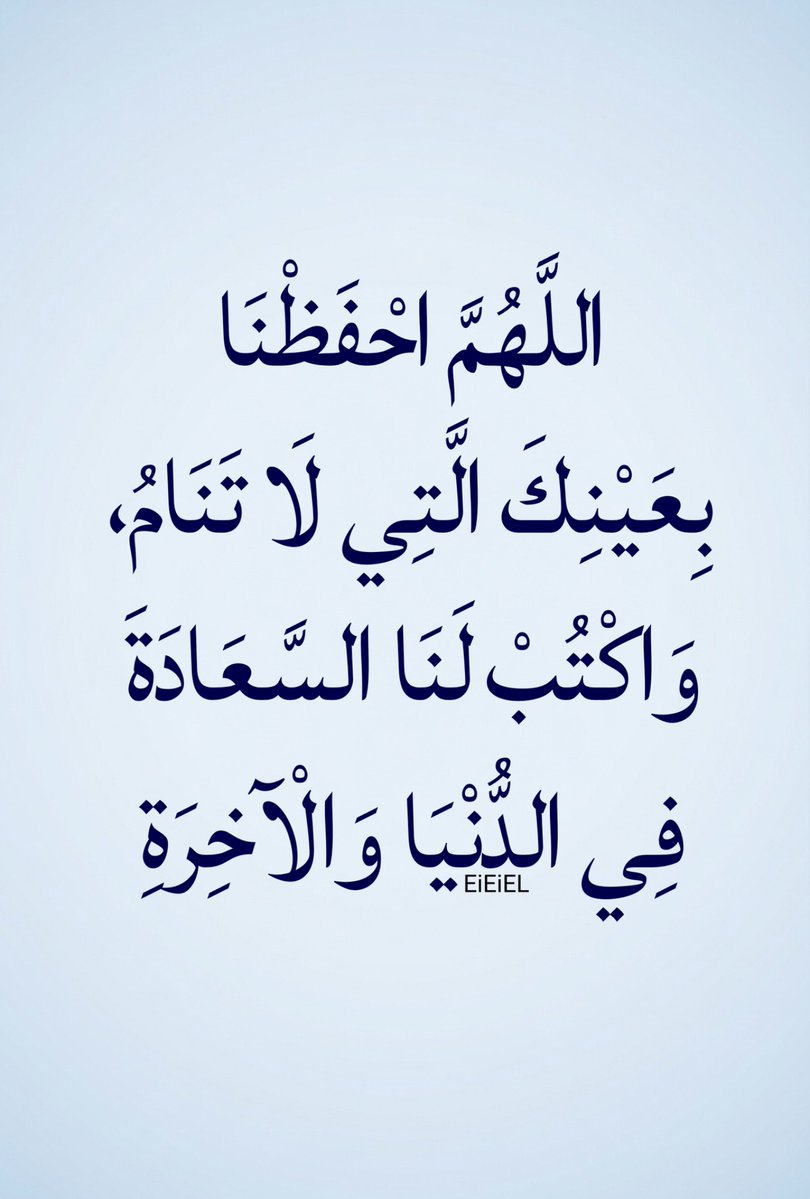 اللَّهُمَّ احْفَظْنَا
بِعَيْنِكَ الَّتِي لَا تَنَامُ،
وَاكْتُبْ لَنَا السَّعَادَةَ
فِي الدُّنْيَا وَالْآخِرَةِ
EiEiEL